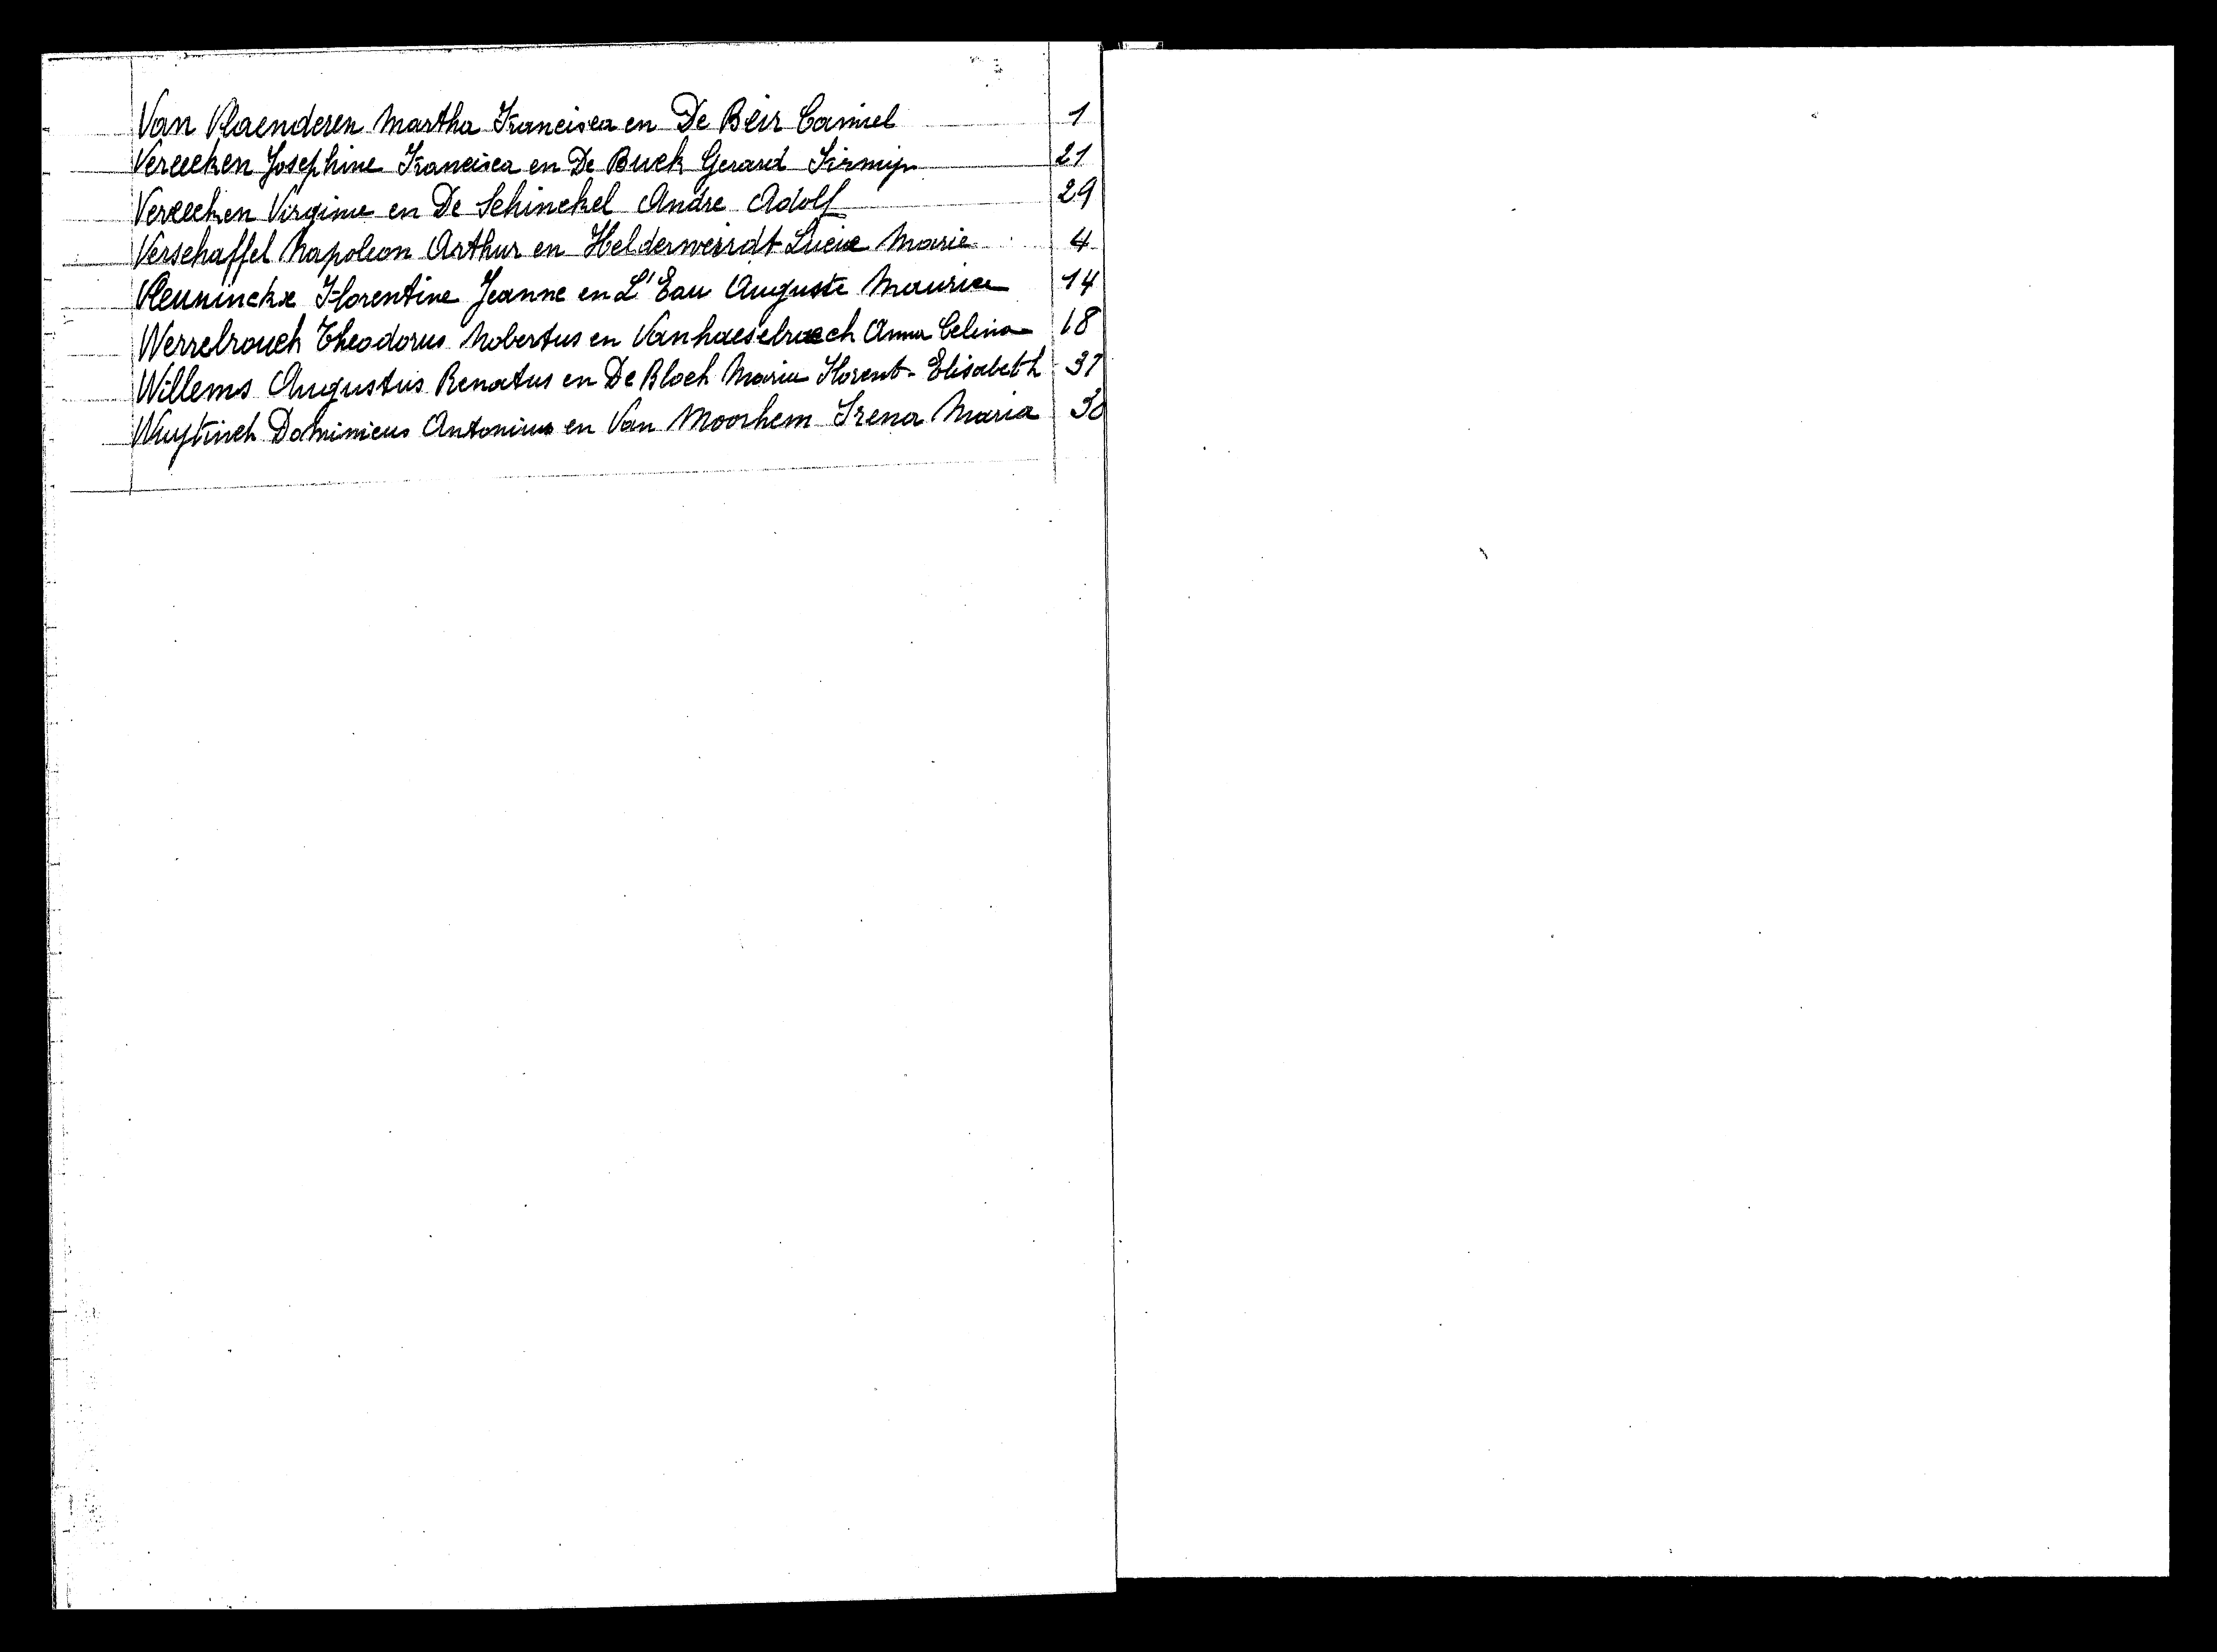 Van Vlaenderen Martha Francisca en De Beir Camiel 1
Vereecken Josephine Francisca en De Buck Gerard Firmin 21
Vereecken Virginie en De Schinckel Andre Adolf 29
Verschaffel Napoleon Arthur en Helderweirdt Lucie Marie 4
Vleuninckx Florentine Jeanne en L'Eau Auguste Maurice 14
Werrebrouck Theodorus Norbertus en Vanhaeselroeck Anna Celina 18
Willems Augustus Renatus en De Block Maria Florent. Elisabeth 37
Wuytinck Dominicus Antonius en Van Moorhem Irena Maria